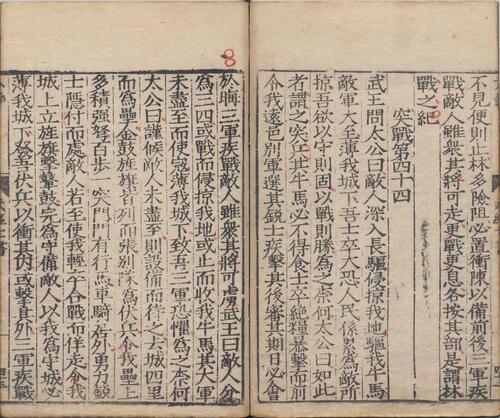 不見便則止林多險阻必置衝陳以備前後三軍疾
戰敵人雖衆其將可走更戰更息各按其部是謂林
戰之紀
突戰第四十四
武王問太公曰敵人深入長驅侵掠我地驅我牛馬
敵軍大至薄我城下吾士卒大恐人民係累爲敵所
掠吾欲以守則固以戰則勝爲之奈何太公曰如此
者謂之突兵其牛馬必不得食士卒絶糧暴擊而前
令我遠邑別軍選其銳士疾擊其後審其期日必會
8
於晦三軍疾戰敵人雖衆其將可虜武王曰敵人分
爲三四或戰而侵掠我地或止而收我牛馬其大軍
未盡至而使寇薄我城下致吾三軍恐懼爲之奈何
太公曰謹候敵人未盡至則設備而待之去城四里
而爲壘金鼓旌旗皆列而張別隊爲伏兵令我壘上
多積强弩百步一突門門有行馬車騎居外勇力銳
士隱付而處敵人若至使我輕卒合戰而佯走令我
城上立旌旗擊鼙鼓完爲守備敵人以我爲守城必
薄我城下發吾伏兵以衝其內或擊其外三軍疾戰